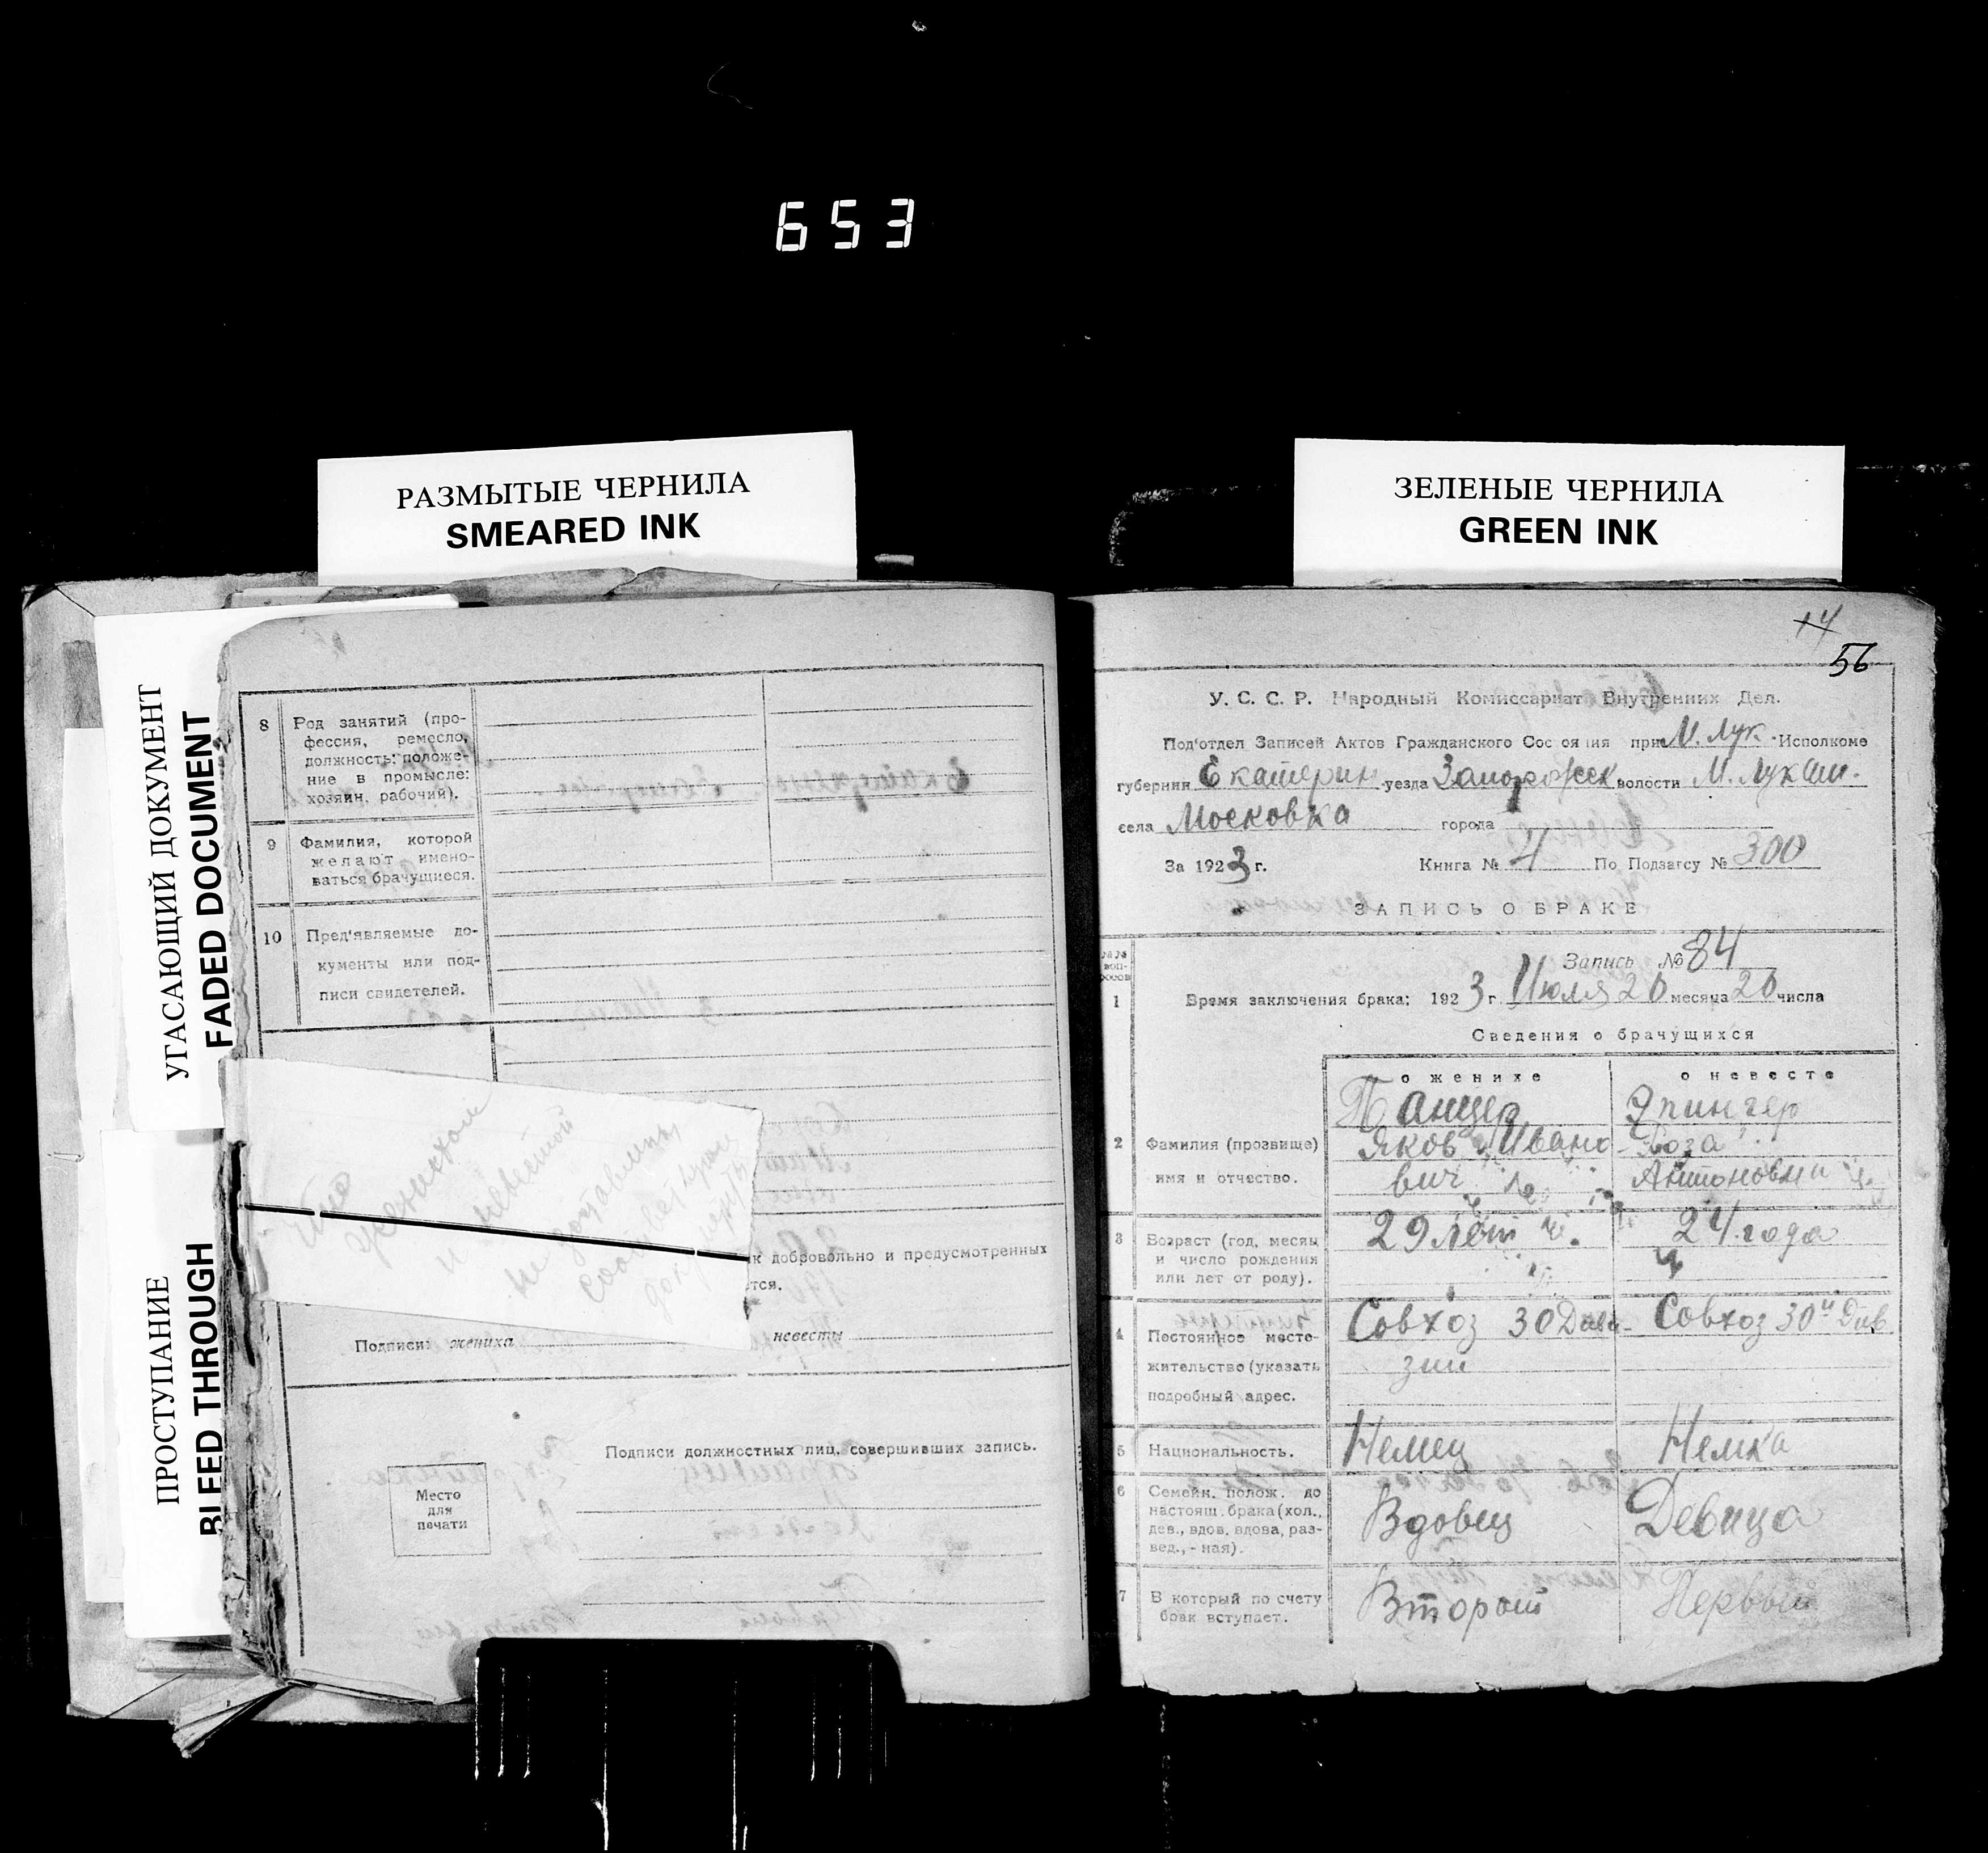 653
РАЗМЫТЫЕ ЧЕРНИЛА
SMEARED INK
ЗЕЛЕНЫЕ ЧЕРНИЛА
GREEN INK
УГАСАЮЩИЙ ДОКУМЕНТ
FADED DOCUMENT
ПРОСТУПАНИЕ
BLEED THROUGH
8 Род занятий (про-
фессия, ремесло,
должность: положе-
ние в промысле:
хозяин, рабочий).
9 Фамилия, которой
желают имено-
ваться брачущиеся.
10 Пред'являемые до-
кументы или под-
писи свидетелей.
женихом
и невестой
не доставлены
соответствую
документы
к добровольно и предусмотренных
ется.
Подписи: жениха невесты
Подписи должностных лиц, совершивших запись.
Место
для
печати
14
56
У. С. С. Р. Народный Комиссариат Внутренних Дел.
Под'отдел Записей Актов Гражданского Состояния при М. Лук. Исполкоме
губернии Екатерин. уезда Запорожск волости М. Лукаш.
села Московка города
За 1923 г. Книга № 4 По Подзагсу № 300
ЗАПИСЬ О БРАКЕ
№№ воп-росов
Запись № 84
1 Время заключения брака: 1923 г. Июля 20 месяца 20 числа
Сведения о брачущихся
о женихе о невесте
Панцер Эпингер
2 Фамилия (прозвище) Яков Ивано Роза
имя и отчество. вич Антоновна
3 Возраст (год, месяц 29 лет 24 года
и число рождения
или лет от роду).
4 Постоянное место- Совхоз 30 Диви- Совхоз 30й Див.
жительство (указать зии
подробный адрес.
5 Национальность. Немец Немка
6 Семейн. полож. до
настоящ. брака (хол., Вдовец Девица
дев., вдов, вдова, раз-
вед., - ная).
7 В который по счету Второй Первый
брак вступает.